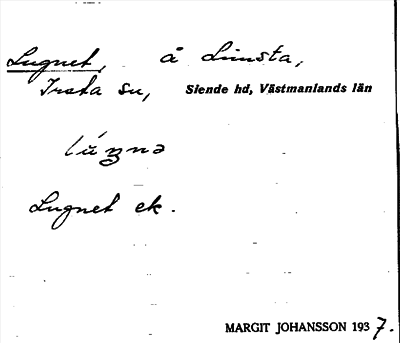 Lugnet, å Limsta,
Irsta sn, Siende hd, Västmanlands län
lúŋnə
Lugnet ek.
MARGIT JOHANSSON 1937.